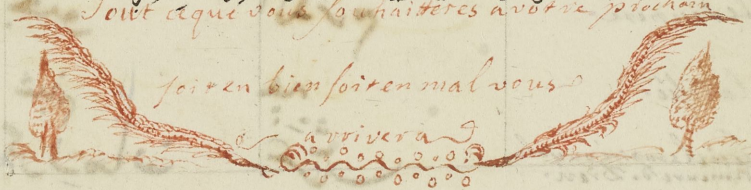 Tout ce que vous souhaitteres a votre prochain
soit en bien soit en mal vous
arrivera